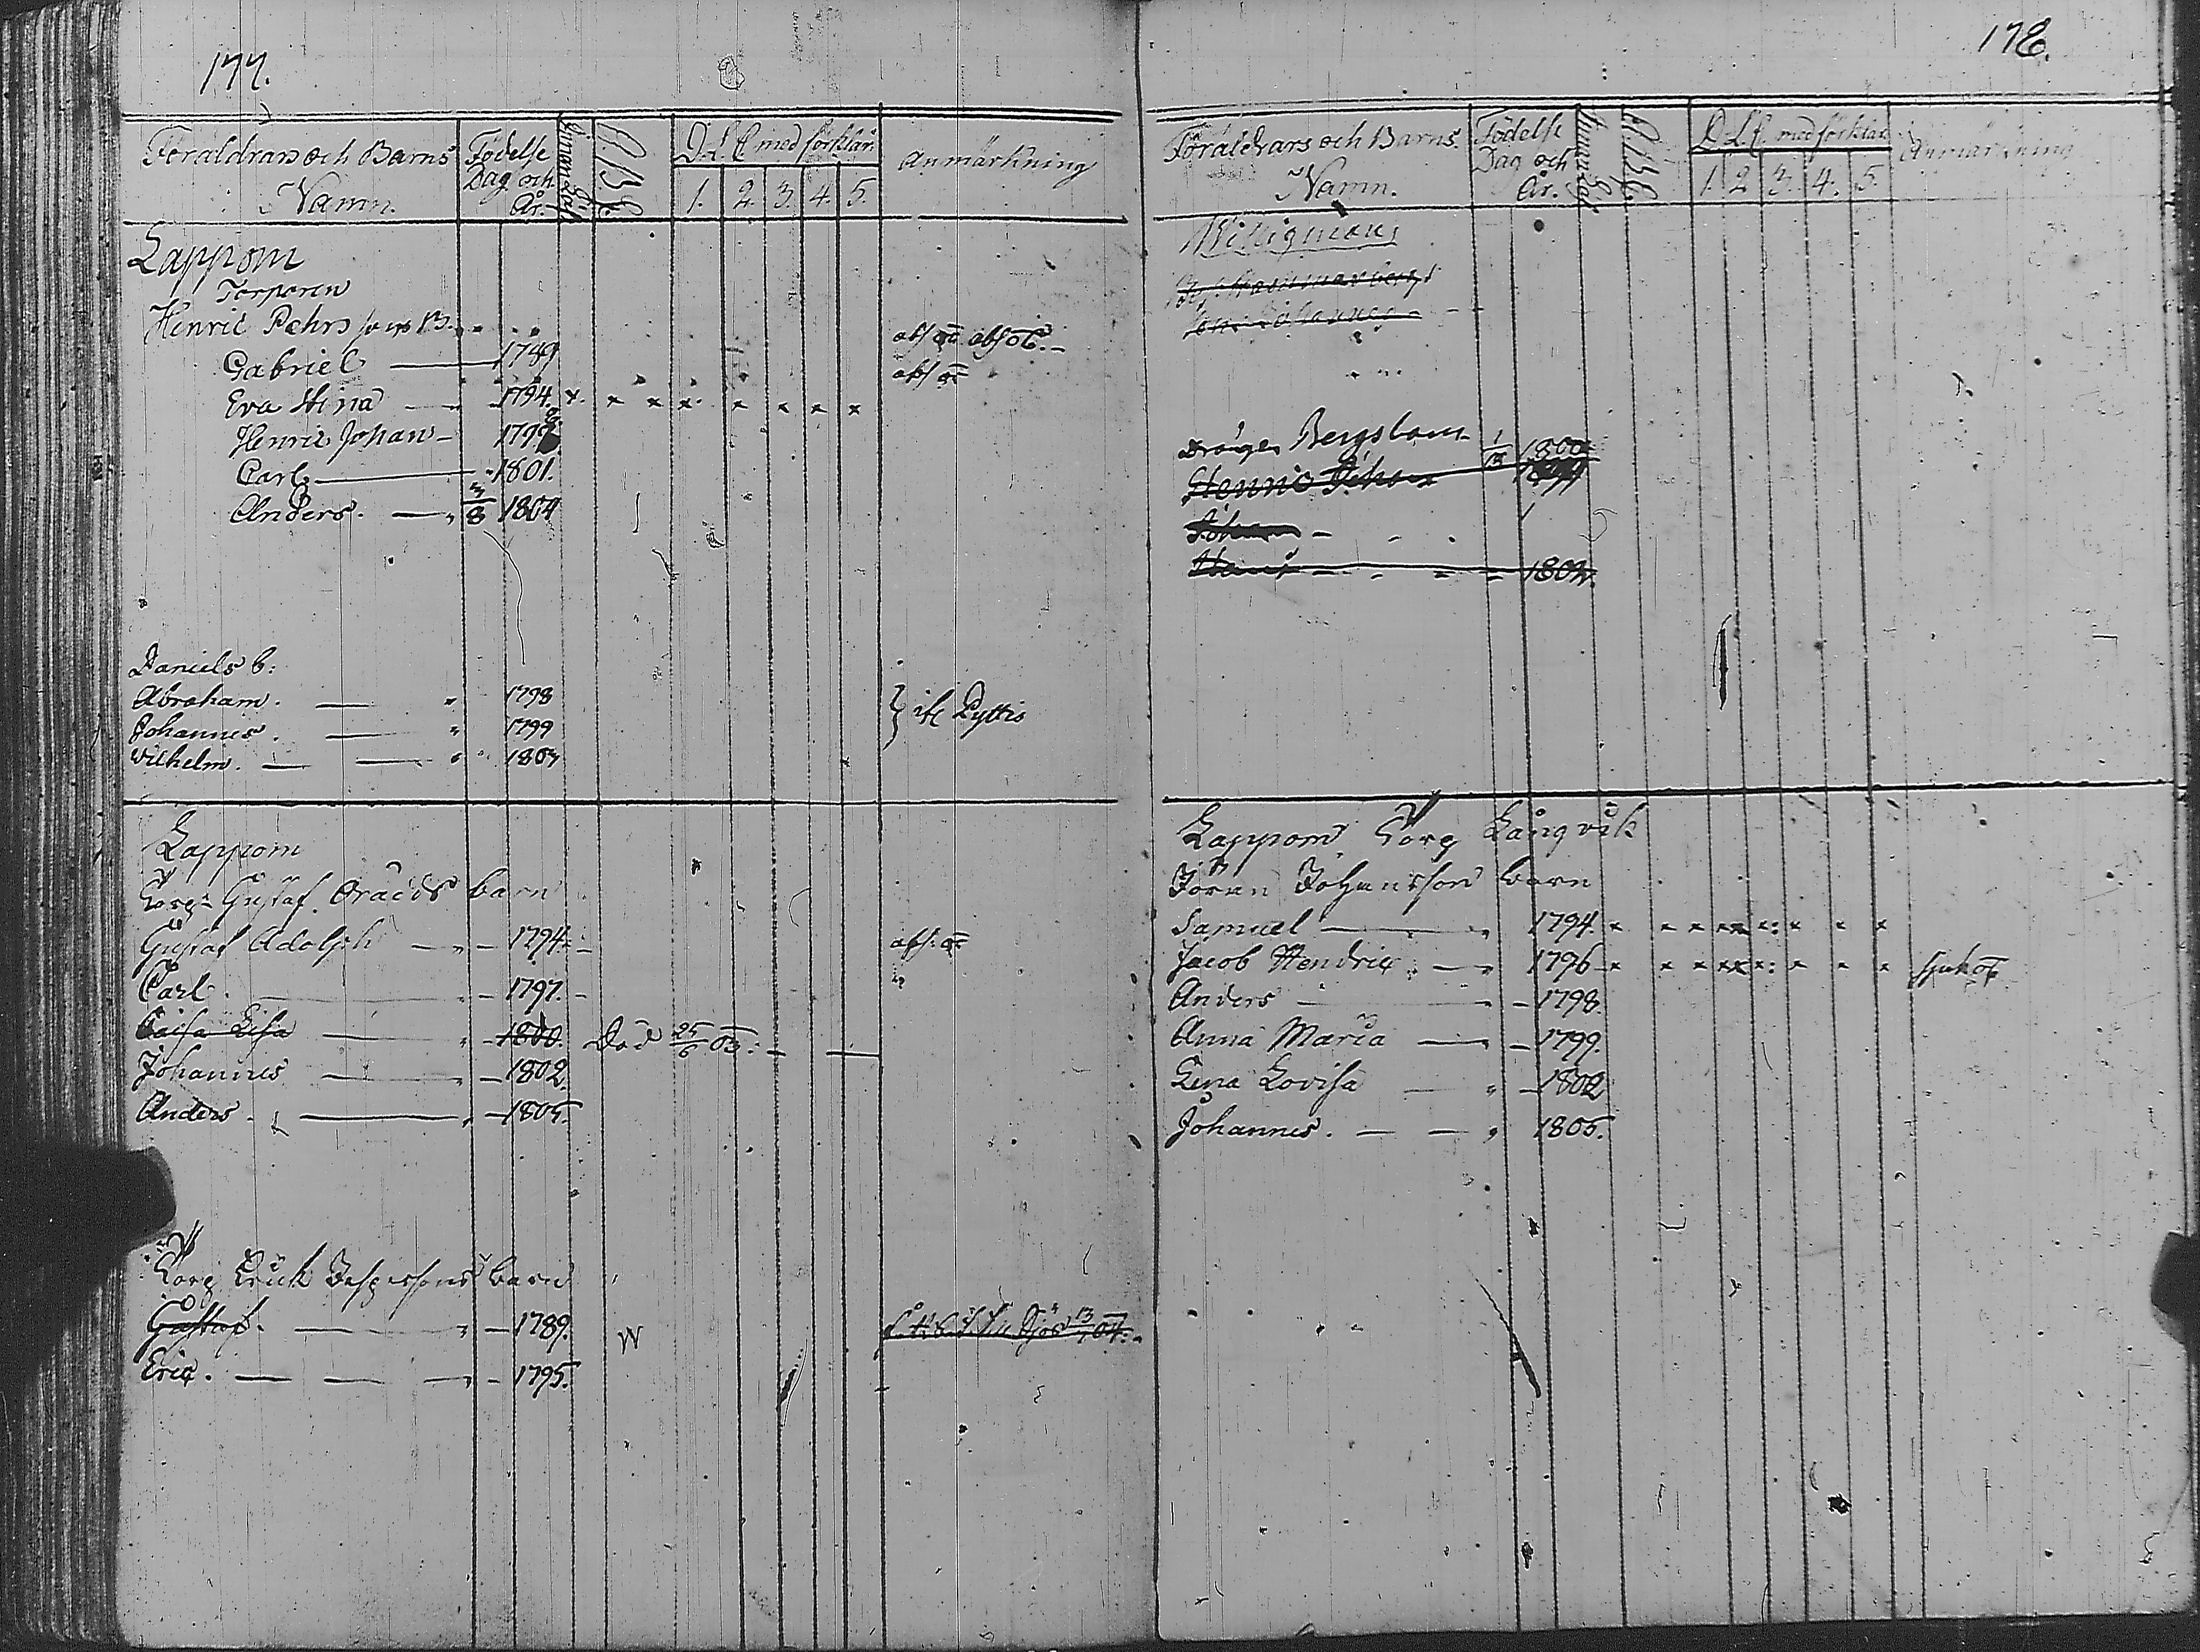 177.
Föräldrars och Barns Namn.
Födelse Dag och År.
Innan Läs
A.B.C.
D.L.C. med förklar.
1. 2. 3. 4. 5.
Anmärkning
Lappom
Torparen
Henric Pehrssons B.
Gabriel 1789 abs. abs 06.
Eva Stina 1794. x x x x x x x x abs
Henric Johan 1798
Carl 1801.
Anders. 3/8 1804
Daniels b:
Abraham. 1798
Johannes. 1799 } it Pyttis
Wilhelm. 1803
Lappom
Torp. Gustaf barn
Gustaf Adolph 1794 abs.
Carl 1797.
Caisa Lisa 1800. Död 25/6 03.
Johannes 1802.
Anders. 1805.
Torp Erich Jespersons barn
Gustaf. 1789.
Eric. 1795.
178.
Föräldrars och Barns Namn.
Födelse Dag och År.
Innan Läs
A.B.C.
D.L.C. med förklar.
1. 2. 3. 4. 5.
Anmärkning
Dränge Bergstom 1/13 1800
Hennric Johan
Johan
1802.
Lappom Torp Långvik
Jöran Johansson barn
Samuel 1794. x x x x x x x x
Jacob Hendric 1796 x x x x x x x x
Anders 1798.
Anna Maria 1799.
Lena Lovisa 1802
Johannes. 1805.